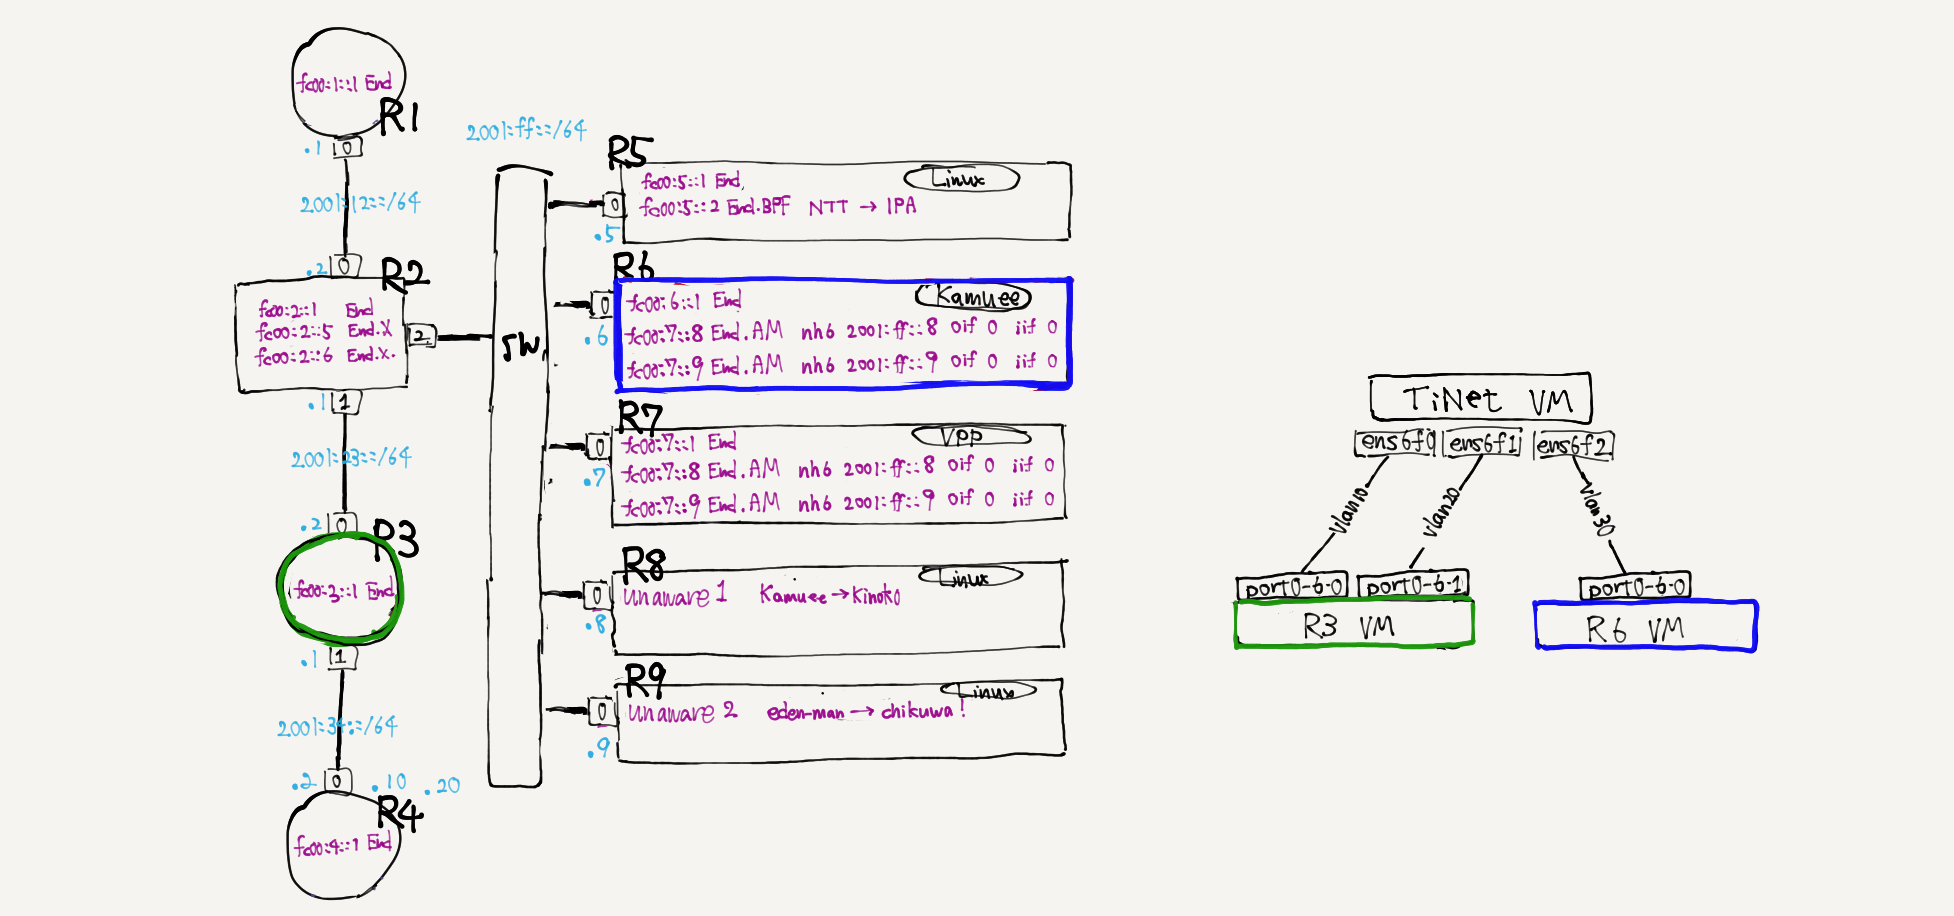 fc00:1::1 End
R1
.1 0
2001:12::/64
.2 0
R2
fc00:2::1 End
fc00:2::5 End.X
fc00:2::6 End.X.
2
.1 1
2001:23::/64
.2 0
R3
fc00:3::1 End
.1 1
2001:34::/64
.2 0 .10 .20
R4
fc00:4::1 End
2001:ff::/64
SW
R5
Linux
fc00:5::1 End,
fc00:5::2 End.BPF NTT → IPA
0
.5
R6
Kamuee
fc00:6::1 End
fc00:7::8 End.AM nh6 2001:ff::8 oif 0 iif 0
fc00:7::9 End.AM nh6 2001:ff::9 oif 0 iif 0
0
.6
R7
VPP
fc00:7::1 End
fc00:7::8 End.AM nh6 2001:ff::8 oif 0 iif 0
fc00:7::9 End.AM nh6 2001:ff::9 oif 0 iif 0
0
.7
R8
Linux
unaware 1 Kamuee→Kinoko
0
.8
R9
Linux
unaware 2 eden-man → chikuwa!
0
.9
TiNet VM
ens6f0 ens6f1 ens6f2
vlan10 vlan20 vlan30
port0-6-0 port0-6-1 port0-6-0
R3 VM
R6 VM